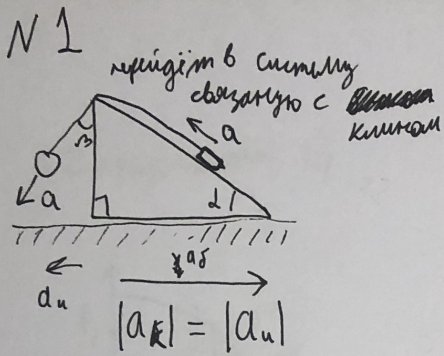 N 1
перейдём в систему
связаную с
клином
β
a
a
α
a_б
a_и
|a_k| = |a_и|